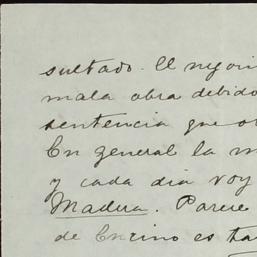 sultado. El negoci
mala obra debido
sentencia que o
En general la m
y cada dia voy
Madera. Parece
de Encino es ta